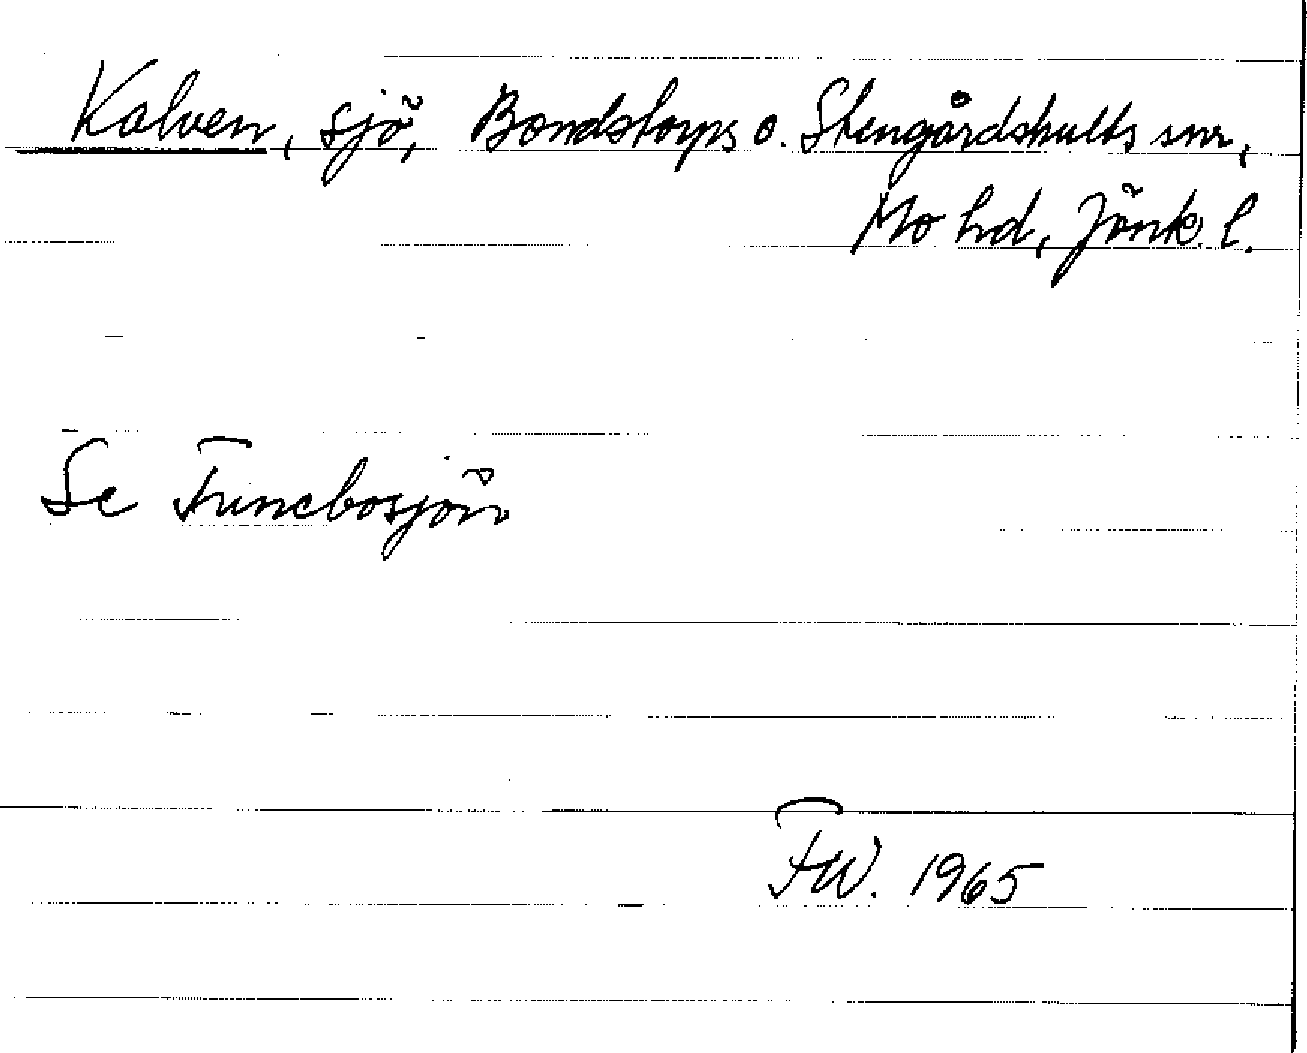 Kalven, sjö, Bondstorps o. Stengårdshults snr,
Mo hd, Jönk. l.
Se Frinebosjön
FW. 1965